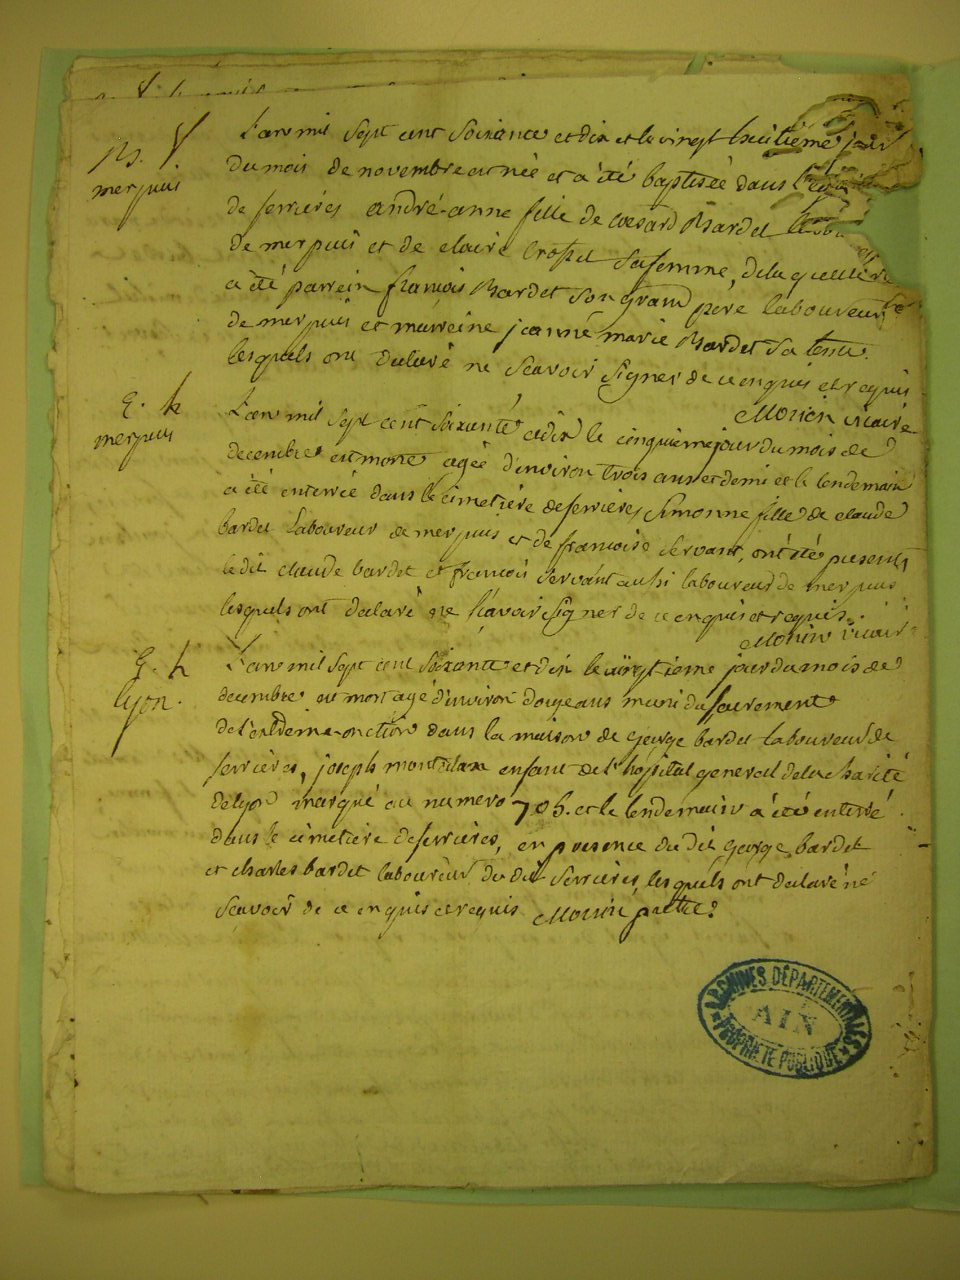 B. f.
merpuis
L'an mil sept cent soixante et dix et le vingt huitieme jour
du mois de novembre est née et a été baptisée dans
de serrières andré-anne fille de coesard Bardet
de merpuis et de claire crozet sa femme, de laquelle
a été parrein françois Bardet son grand père laboureur
de merpuis et marreine jeanne marie Bardet sa tente
lesquels ont declaré ne scavoir signer de ce enquis et requis
Morion vicaire
E. h
merpuis
L'an mil sept cent soixante et dix le cinquieme jour du mois de
decembre est morte agée d'environ trois ans et demi et le lendemain
a été enterrée dans le cimetière de serrières Simonne fille de claude
bardet laboureur de merpuis et de francoise servant, ont été presents
le dit claude bardet et francois servant aussi laboureur de merpuis
lesquels ont declaré ne scavoir signer de ce enquis et requis.
Morion vicaire
E. h
lyon.
L'an mil sept cent soixante et dix le vingtieme jour du mois de
decembre est mort agé d'environ douze ans muni du sacrement
de l'extreme-onction dans la maison de george bardet laboureur de
serrières, joseph enfant de l'hospital general de la charité
de lyon marqué au numero 705. et le lendemain a été enterré
dans le cimetière de serrières, en presence du dit george bardet
et charles bardet laboureur du dit serrières, lesquels ont declaré ne
scavoir de ce enquis et requis Morion pretre.
ARCHIVES DÉPARTEMENTALES
AIN
PROPRIÉTÉ PUBLIQUE